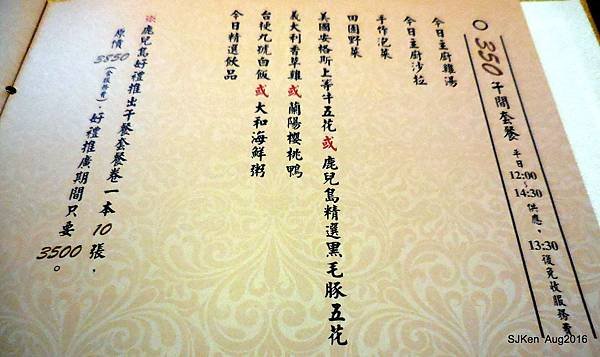 350 午間套餐 平日12:00~14:30供應，13:30後免收服務費
今日主廚雞湯
今日主廚沙拉
手作泡菜
田園野菜
美國安格斯上等牛五花 或 鹿兒島精選黑毛豚五花
義大利香草雞 或 蘭陽櫻桃鴨
台梗九號白飯 或 大和海鮮粥
今日精選飲品
※鹿兒島好禮推出午餐套餐卷一本10張，
原價3850(含服務費)，好禮推廣期間只要3500。
SJKen Aug2016